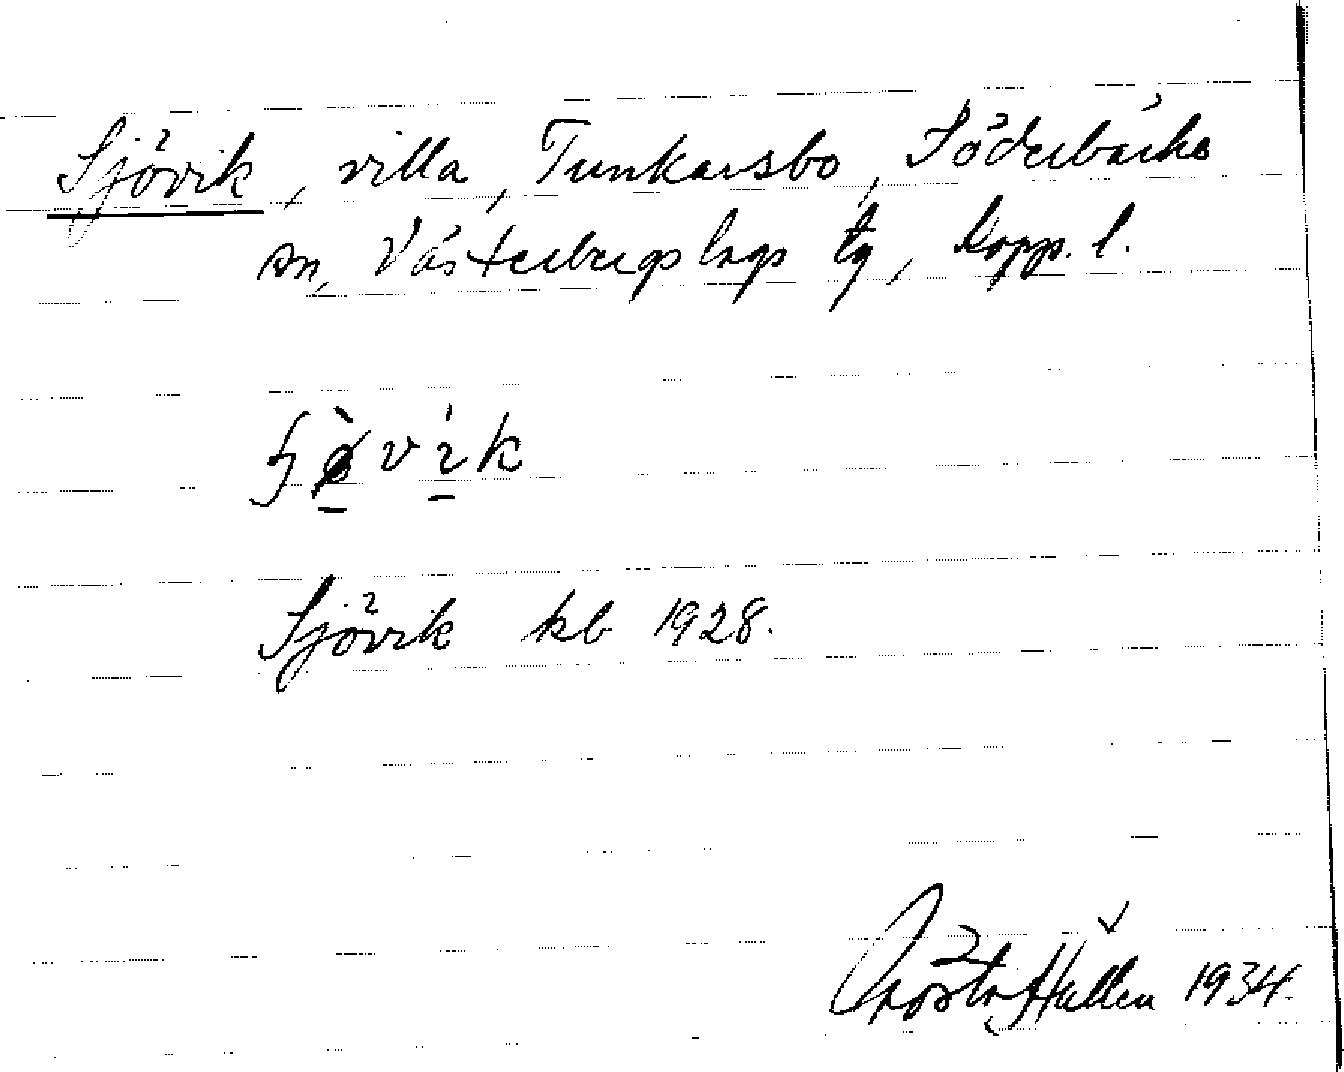 Sjövik, villa, Tunkarsbo, Söderbärke
sn, Västerbergslags tg, Kopp. l.
Sjövik kb 1928.
Gösta Hallén 1934.